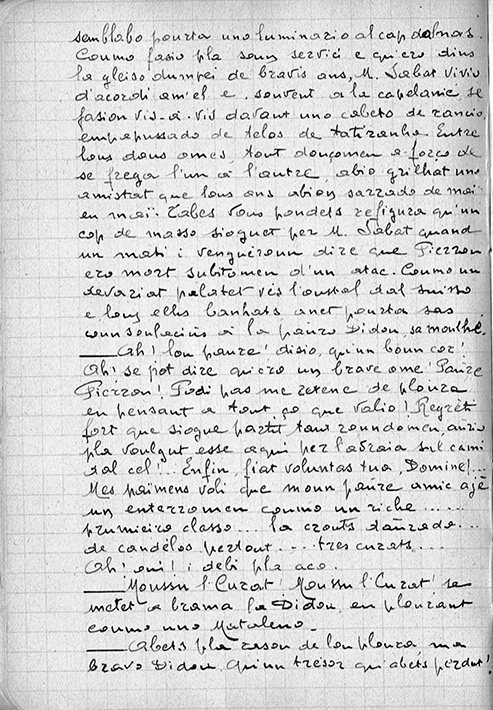 semblabo pourta uno luminario al cap dal nas.
Coumo fasio pla soun servici e qu'ero dins
la gleiso dumpei de bravis ans, M. Sabat vivio
d'acordi am'el e, souvent, a la capelanie, se
fasion vis-à-vis davant uno cabeto de rancio,
empapussado de telos de tatiranho. Entre
lous dous omes, tout douçomen a força de
se frega l'un a l'autre, abio grilhat uno
amistat que lous ans abion sarrado de mai
en mai. Tabes vous poudets refigura qu'un
cop de masso sioguet per M. Sabat quand
un mati i venguèroun dire que Pierroun
ero mort subitomen d'un atac. Coumo un
devariat palatet vès l'oustal dal suisso
e lous elhs banhats anet pourta sas
counsoulacius à la pauro Didou, sa moulhé.
___Ah! lou paure! disio, qu'un boun cor!
Ah! se pot dire qu'ero un brave ome! Paure
Pierroun! Podi pas me retene de ploura
en pensant a tout ço que valio! Regrèti
fort que siogue partit tant roundomen, aurio
pla voulgut esse aqui per l'adraia sul cami
dal cel!... Enfin, fiat voluntas tua, Domine!...
Mes païmens voli que moun paure amic aje
un enterromen coumo un riche......
prumieiro classo... la crouts daurado...
de candèlos pertout.... tres curats....
Ah! oui! i debi pla aco.
___Moussu l'Curat! Moussu l'Curat! se
metet a brama la Didou, en plourant
coumo uno Mataleno.
___Abets pla rasou de lou ploura, ma
bravo Didou. Qu'un trésor qu'abets perdut!